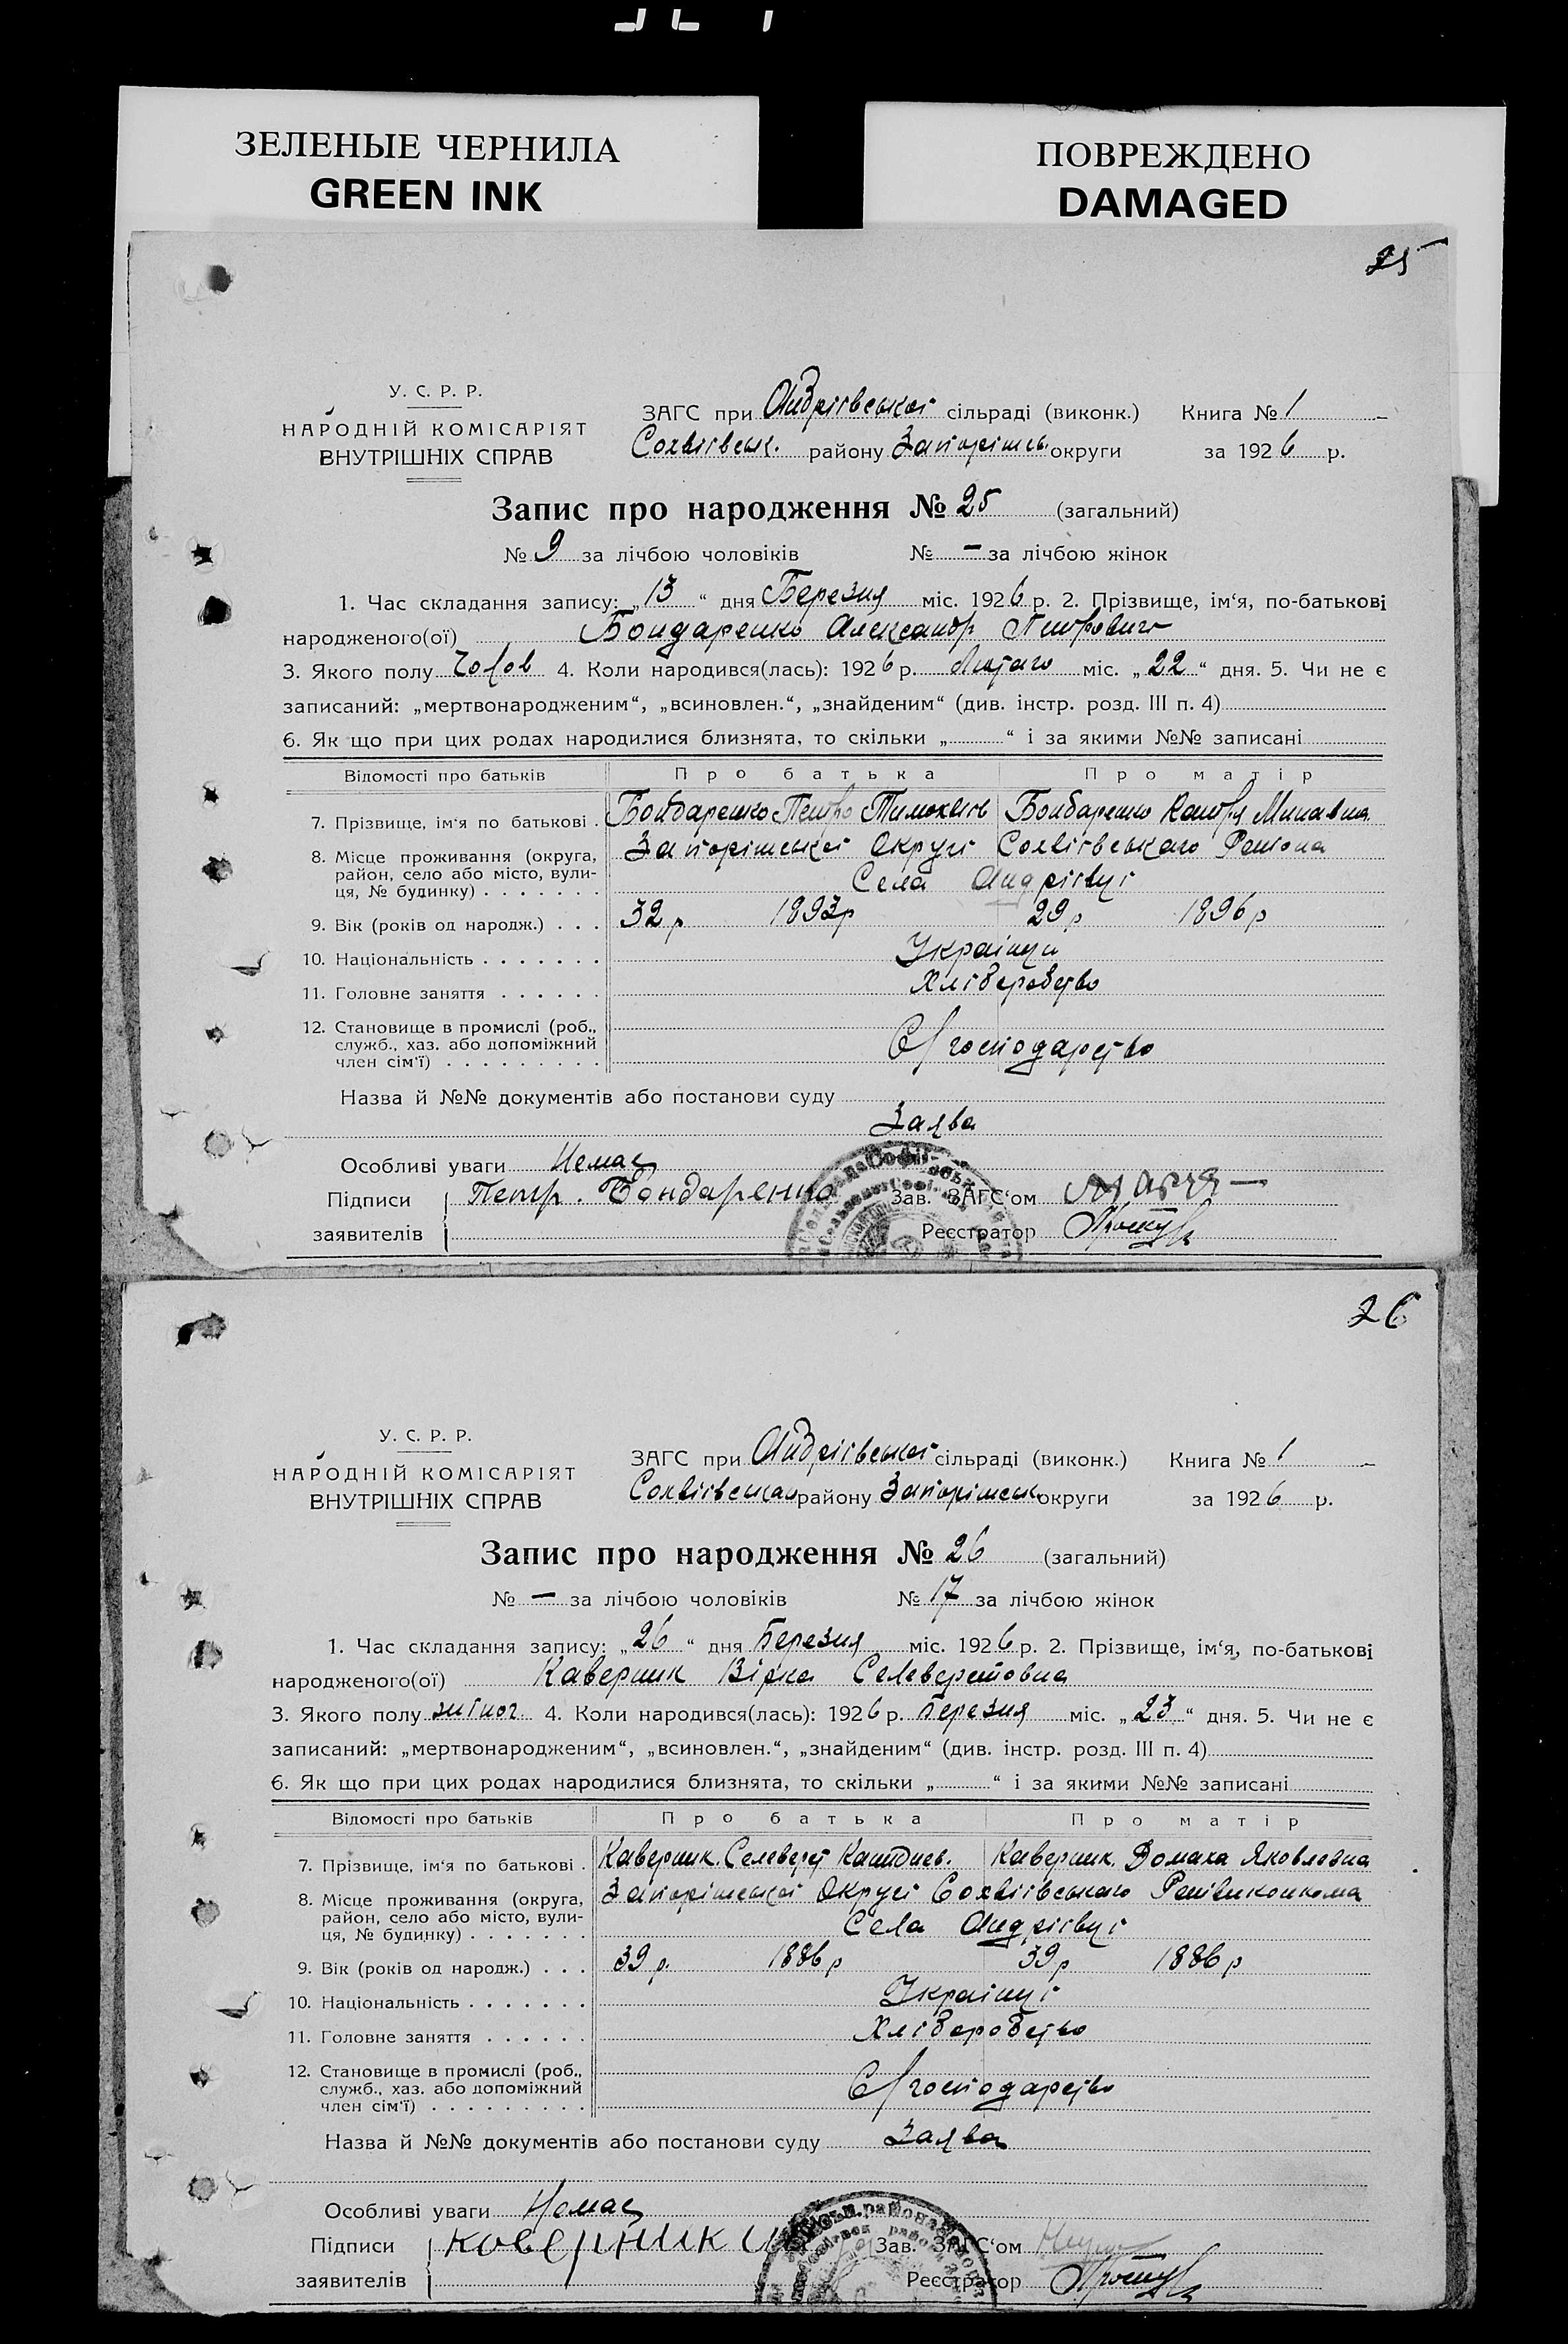 ЗЕЛЕНЫЕ ЧЕРНИЛА
GREEN INK
ПОВРЕЖДЕНО
DAMAGED
25
У. С. Р. Р.
НАРОДНІЙ КОМІСАРІЯТ
ВНУТРІШНІХ СПРАВ
ЗАГС при Андріївської сільраді (виконк.) Книга № 1
Софіївськ. району Запоріжсь округи за 1926 р.
Запис про народження № 25 (загальний)
№ 9 за лічбою чоловіків № — за лічбою жінок
1. Час складання запису: „13“ дня Березня міс. 1926 р. 2. Прізвище, ім‘я, по-батькові
народженого(ої) Бондаренко Александр Петрович
3. Якого полу Чолов 4. Коли народився(лась): 1926 р. Лютаго міс. „22“ дня. 5. Чи не є
записаний: „мертвонародженим“, „всиновлен.“, „знайденим“ (див. інстр. розд. III п. 4)
6. Як що при цих родах народилися близнята, то скільки „ “ і за якими №№ записані
Відомості про батьків Про батька Про матір
7. Прізвище, ім‘я по батькові . Бондаренко Петро Тимохвів Бондаренко Катря Минавна
8. Місце проживання (округа, Запоріжської Округи Софіївського Района
район, село або місто, вули-
ця, № будинку) . . . . . . . Села Андрієвці
9. Вік (років од народж.) . . . 32 р 1893р 29 р 1896 р
10. Національність . . . . . . . Україньци
11. Головне заняття . . . . . . Хліборобство
12. Становище в промислі (роб.,
служб., хаз. або допоміжний С/господарство
член сім‘ї) . . . . . . . . .
Назва й №№ документів або постанови суду
Заява
Особливі уваги Немає
Підписи Петр. Бондаренко Зав. ЗАГС‘ом
заявителів Реєстратор
26
У. С. Р. Р.
НАРОДНІЙ КОМІСАРІЯТ
ВНУТРІШНІХ СПРАВ
ЗАГС при Андріївської сільраді (виконк.) Книга № 1
Софіївськаи району Запоріжськ округи за 1926 р.
Запис про народження № 26 (загальний)
№ — за лічбою чоловіків № 17 за лічбою жінок
1. Час складання запису: „26“ дня Березня міс. 1926 р. 2. Прізвище, ім‘я, по-батькові
народженого(ої) Каверник Вірка Селеверстовна
3. Якого полу жіноч 4. Коли народився(лась): 1926 р. Березня міс. „23“ дня. 5. Чи не є
записаний: „мертвонародженим“, „всиновлен.“, „знайденим“ (див. інстр. розд. III п. 4)
6. Як що при цих родах народилися близнята, то скільки „ “ і за якими №№ записані
Відомості про батьків Про батька Про матір
7. Прізвище, ім‘я по батькові . Каверник. Селеверст Каверник. Домаха Яковлевна
8. Місце проживання (округа, Запоріжської Округи Софіївського Репівиконкома
район, село або місто, вули-
ця, № будинку) . . . . . . . Села Андрієвці
9. Вік (років од народж.) . . . 39 р. 1886 р 39 р 1886 р
10. Національність . . . . . . . Україньці
11. Головне заняття . . . . . . Хліборобство
12. Становище в промислі (роб.,
служб., хаз. або допоміжний С/господарство
член сім‘ї) . . . . . . . . .
Назва й №№ документів або постанови суду Заява
Особливі уваги Немає
Підписи коверник Зав. ЗАГС‘ом
заявителів Реєстратор